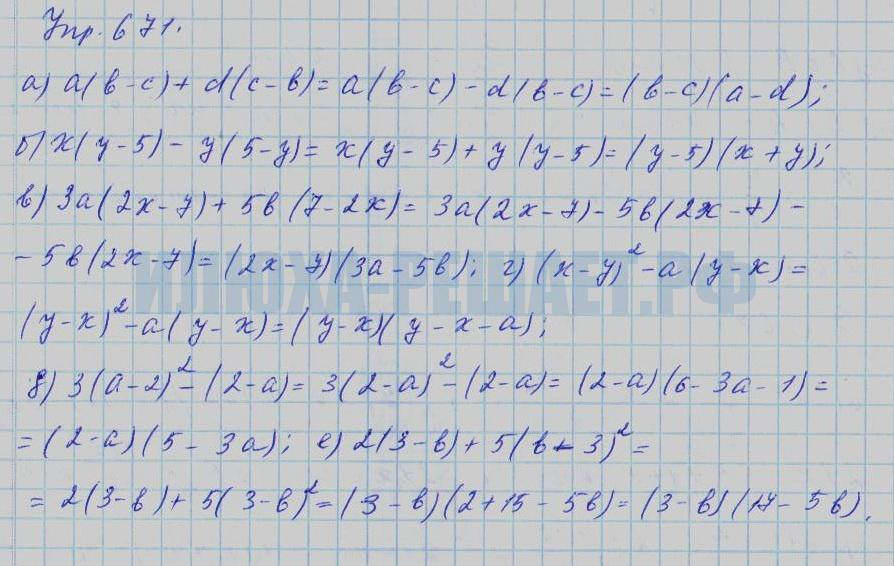 Упр. 671.
а) a(b-c)+d(c-b)=a(b-c)-d(b-c)=(b-c)(a-d);
б) x(y-5)-y(5-y)=x(y-5)+y(y-5)=(y-5)(x+y);
в) 3a(2x-7)+5b(7-2x)=3a(2x-7)-5b(2x-7)-
-5b(2x-7)=(2x-7)(3a-5b); г) (x-y)²-a(y-x)=
ИЛЮХА-РЕШАЕТ.РФ
(y-x)²-a(y-x)=(y-x)(y-x-a);
д) 3(a-2)²-(2-a)=3(2-a)²-(2-a)=(2-a)(6-3a-1)=
=(2-a)(5-3a); е) 2(3-b)+5(b-3)²=
=2(3-b)+5(3-b)²=(3-b)(2+15-5b)=(3-b)(17-5b).